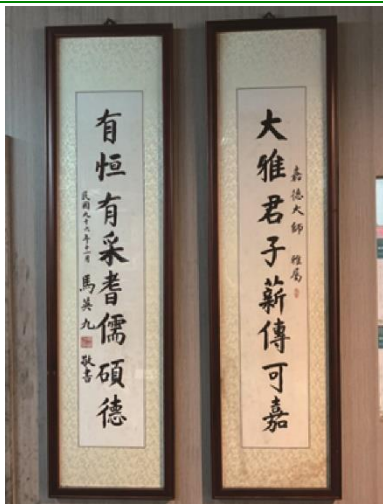 大雅君子薪傳可嘉
嘉德大師 雅屬
有恒有采耆儒碩德
民國九十六年十一月
馬英九 敬書